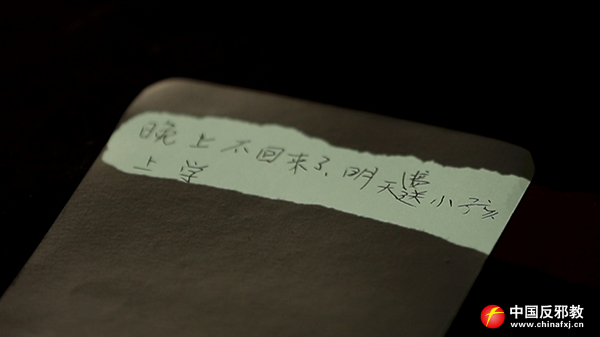 晚上不回来了,明天送小孩
上学
中国反邪教
www.chinafxj.cn